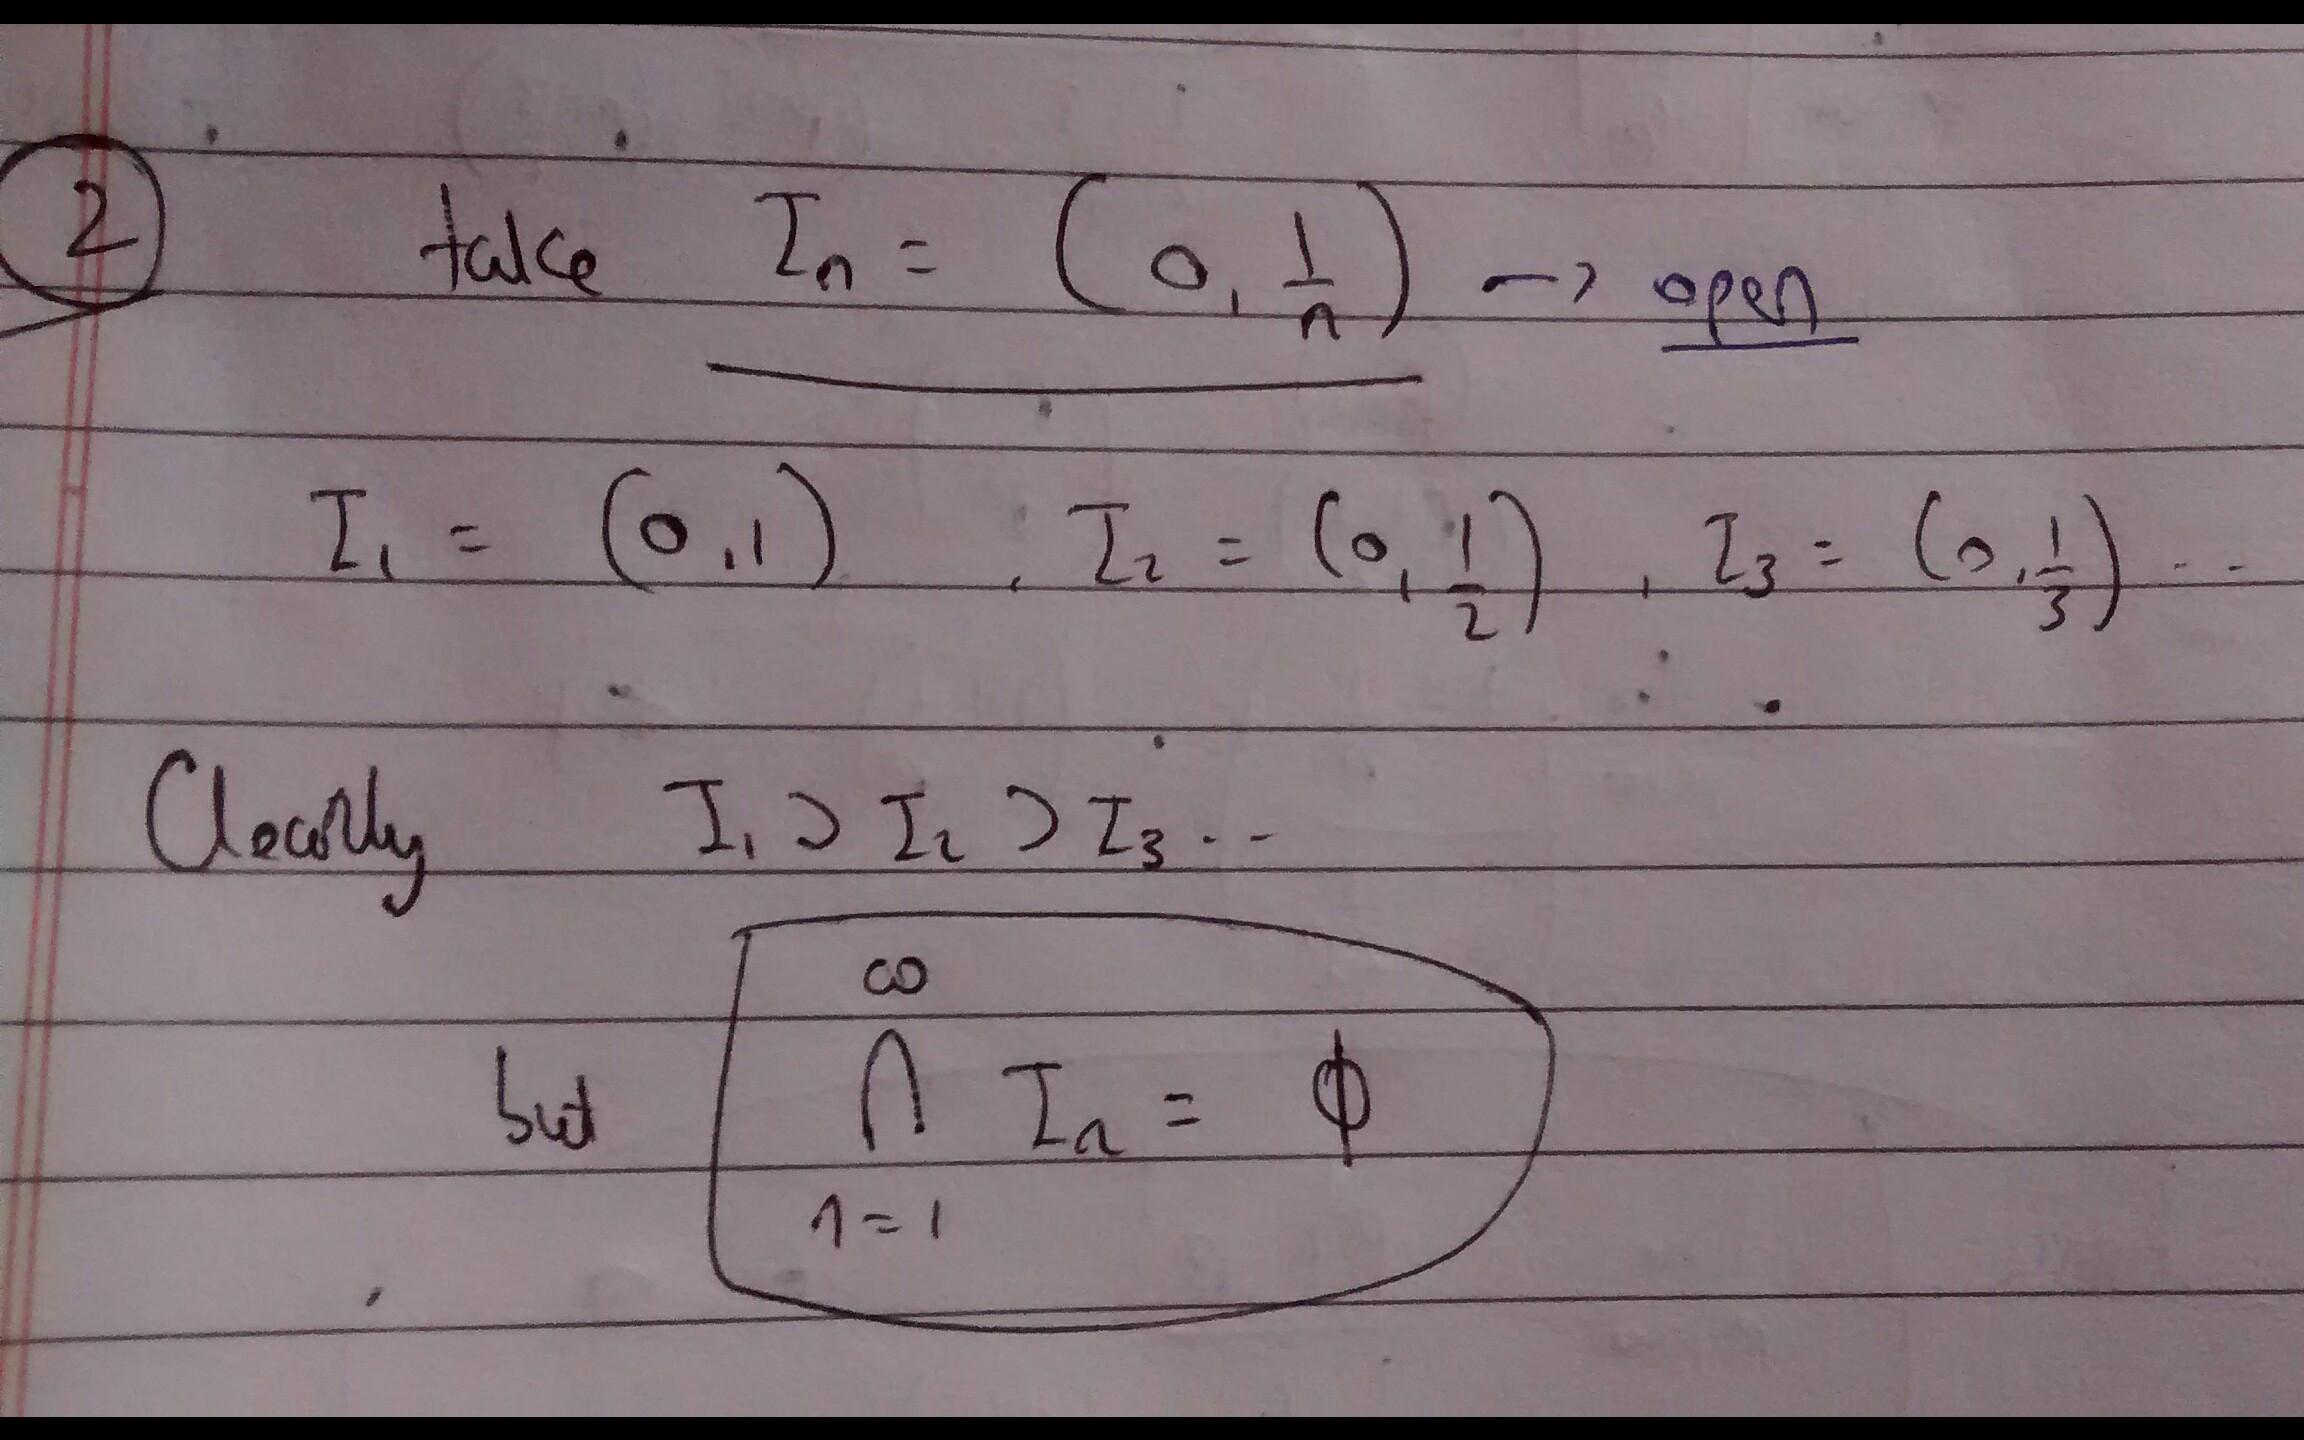 2 take Iₙ = (0, 1/n) → open
I₁ = (0,1) , I₂ = (0, 1/2) , I₃ = (0, 1/3) ...
Clearly I₁ ⊃ I₂ ⊃ I₃ ...
∞
but ∩ Iₙ = ϕ
n=1